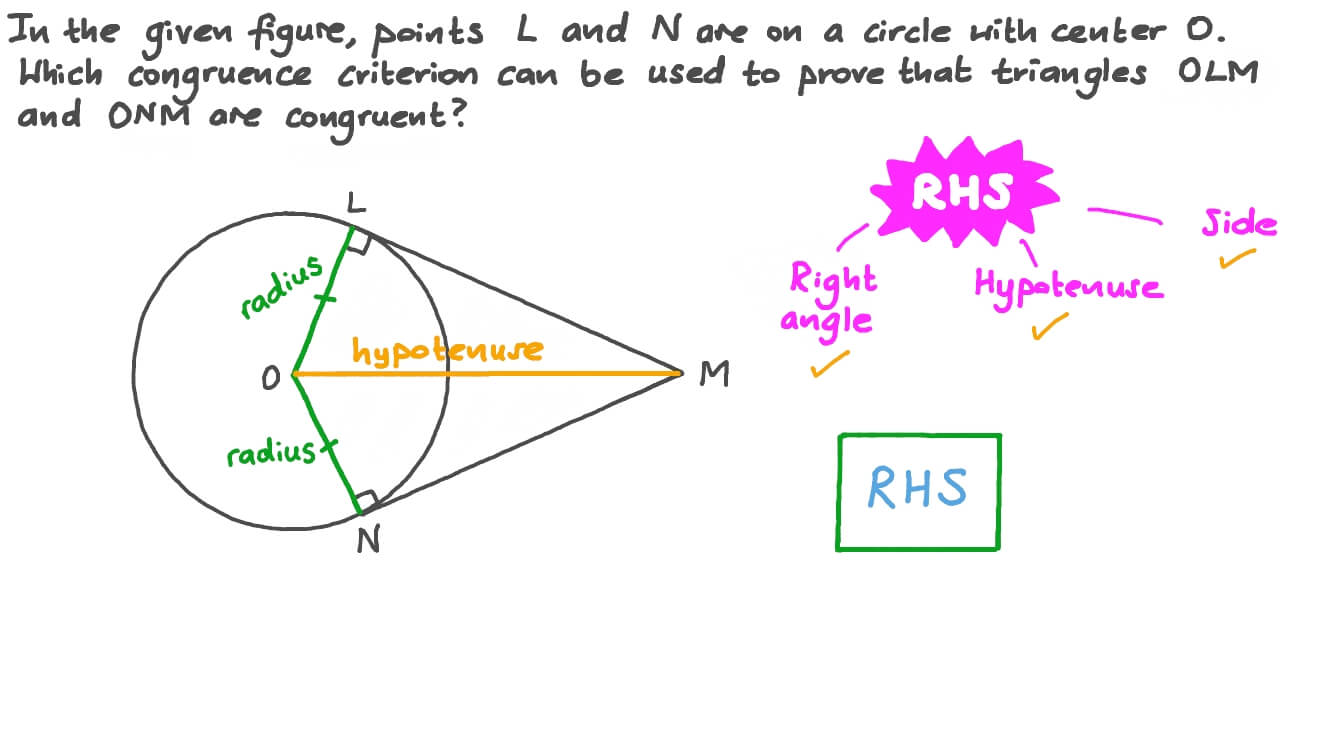 In the given figure, points L and N are on a circle with center O.
Which congruence criterion can be used to prove that triangles OLM
and ONM are congruent?
RHS
Side
Right
angle
Hypotenuse
L
radius
hypotenuse
O
M
radius
N
RHS